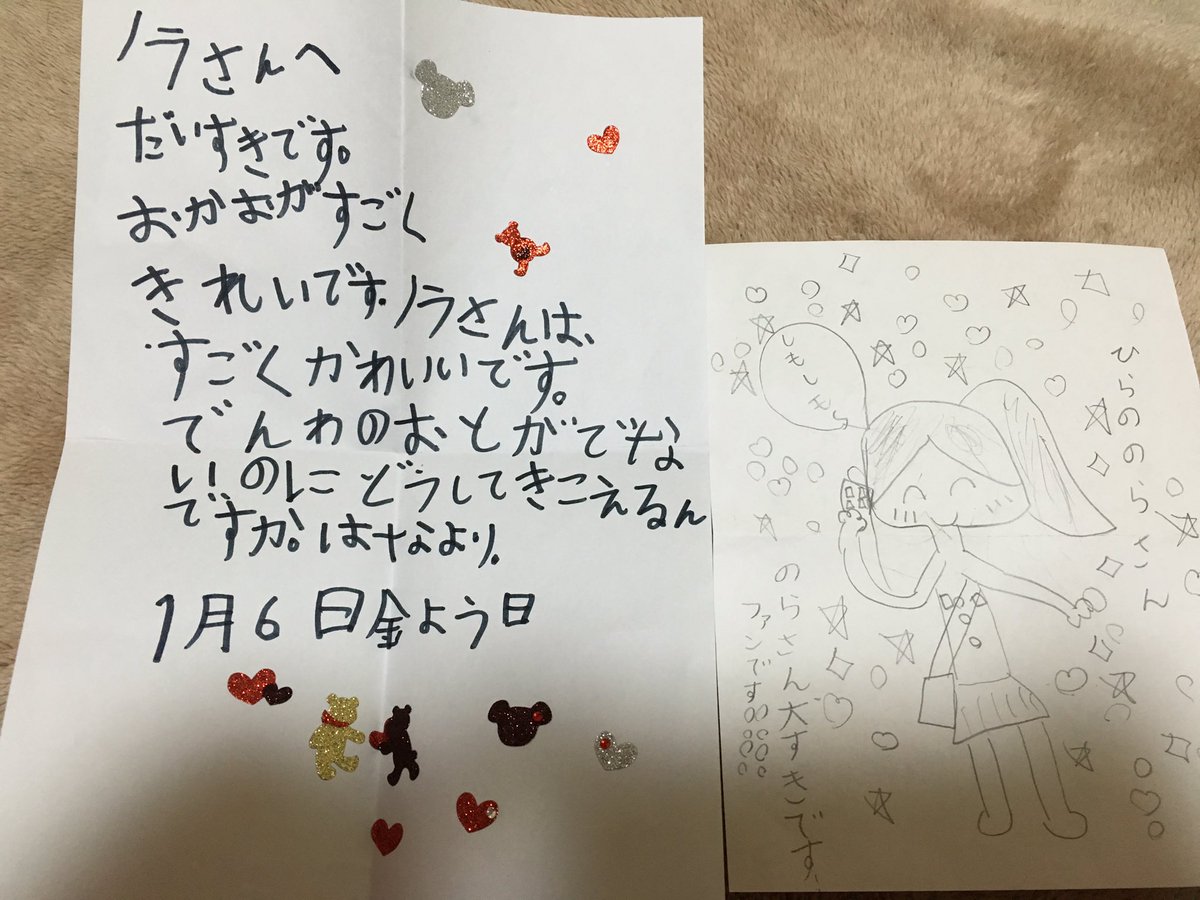 ノラさんへ
だいすきです。
おかおがすごく
きれいです。ノラさんは、
すごくかわいいです。
でんわのおとがでな
いのにどうしてきこえるん
ですか。はなより。
1月6日金よう日
ひらののらさん
もしもし
のらさん大すきです。
ファンです